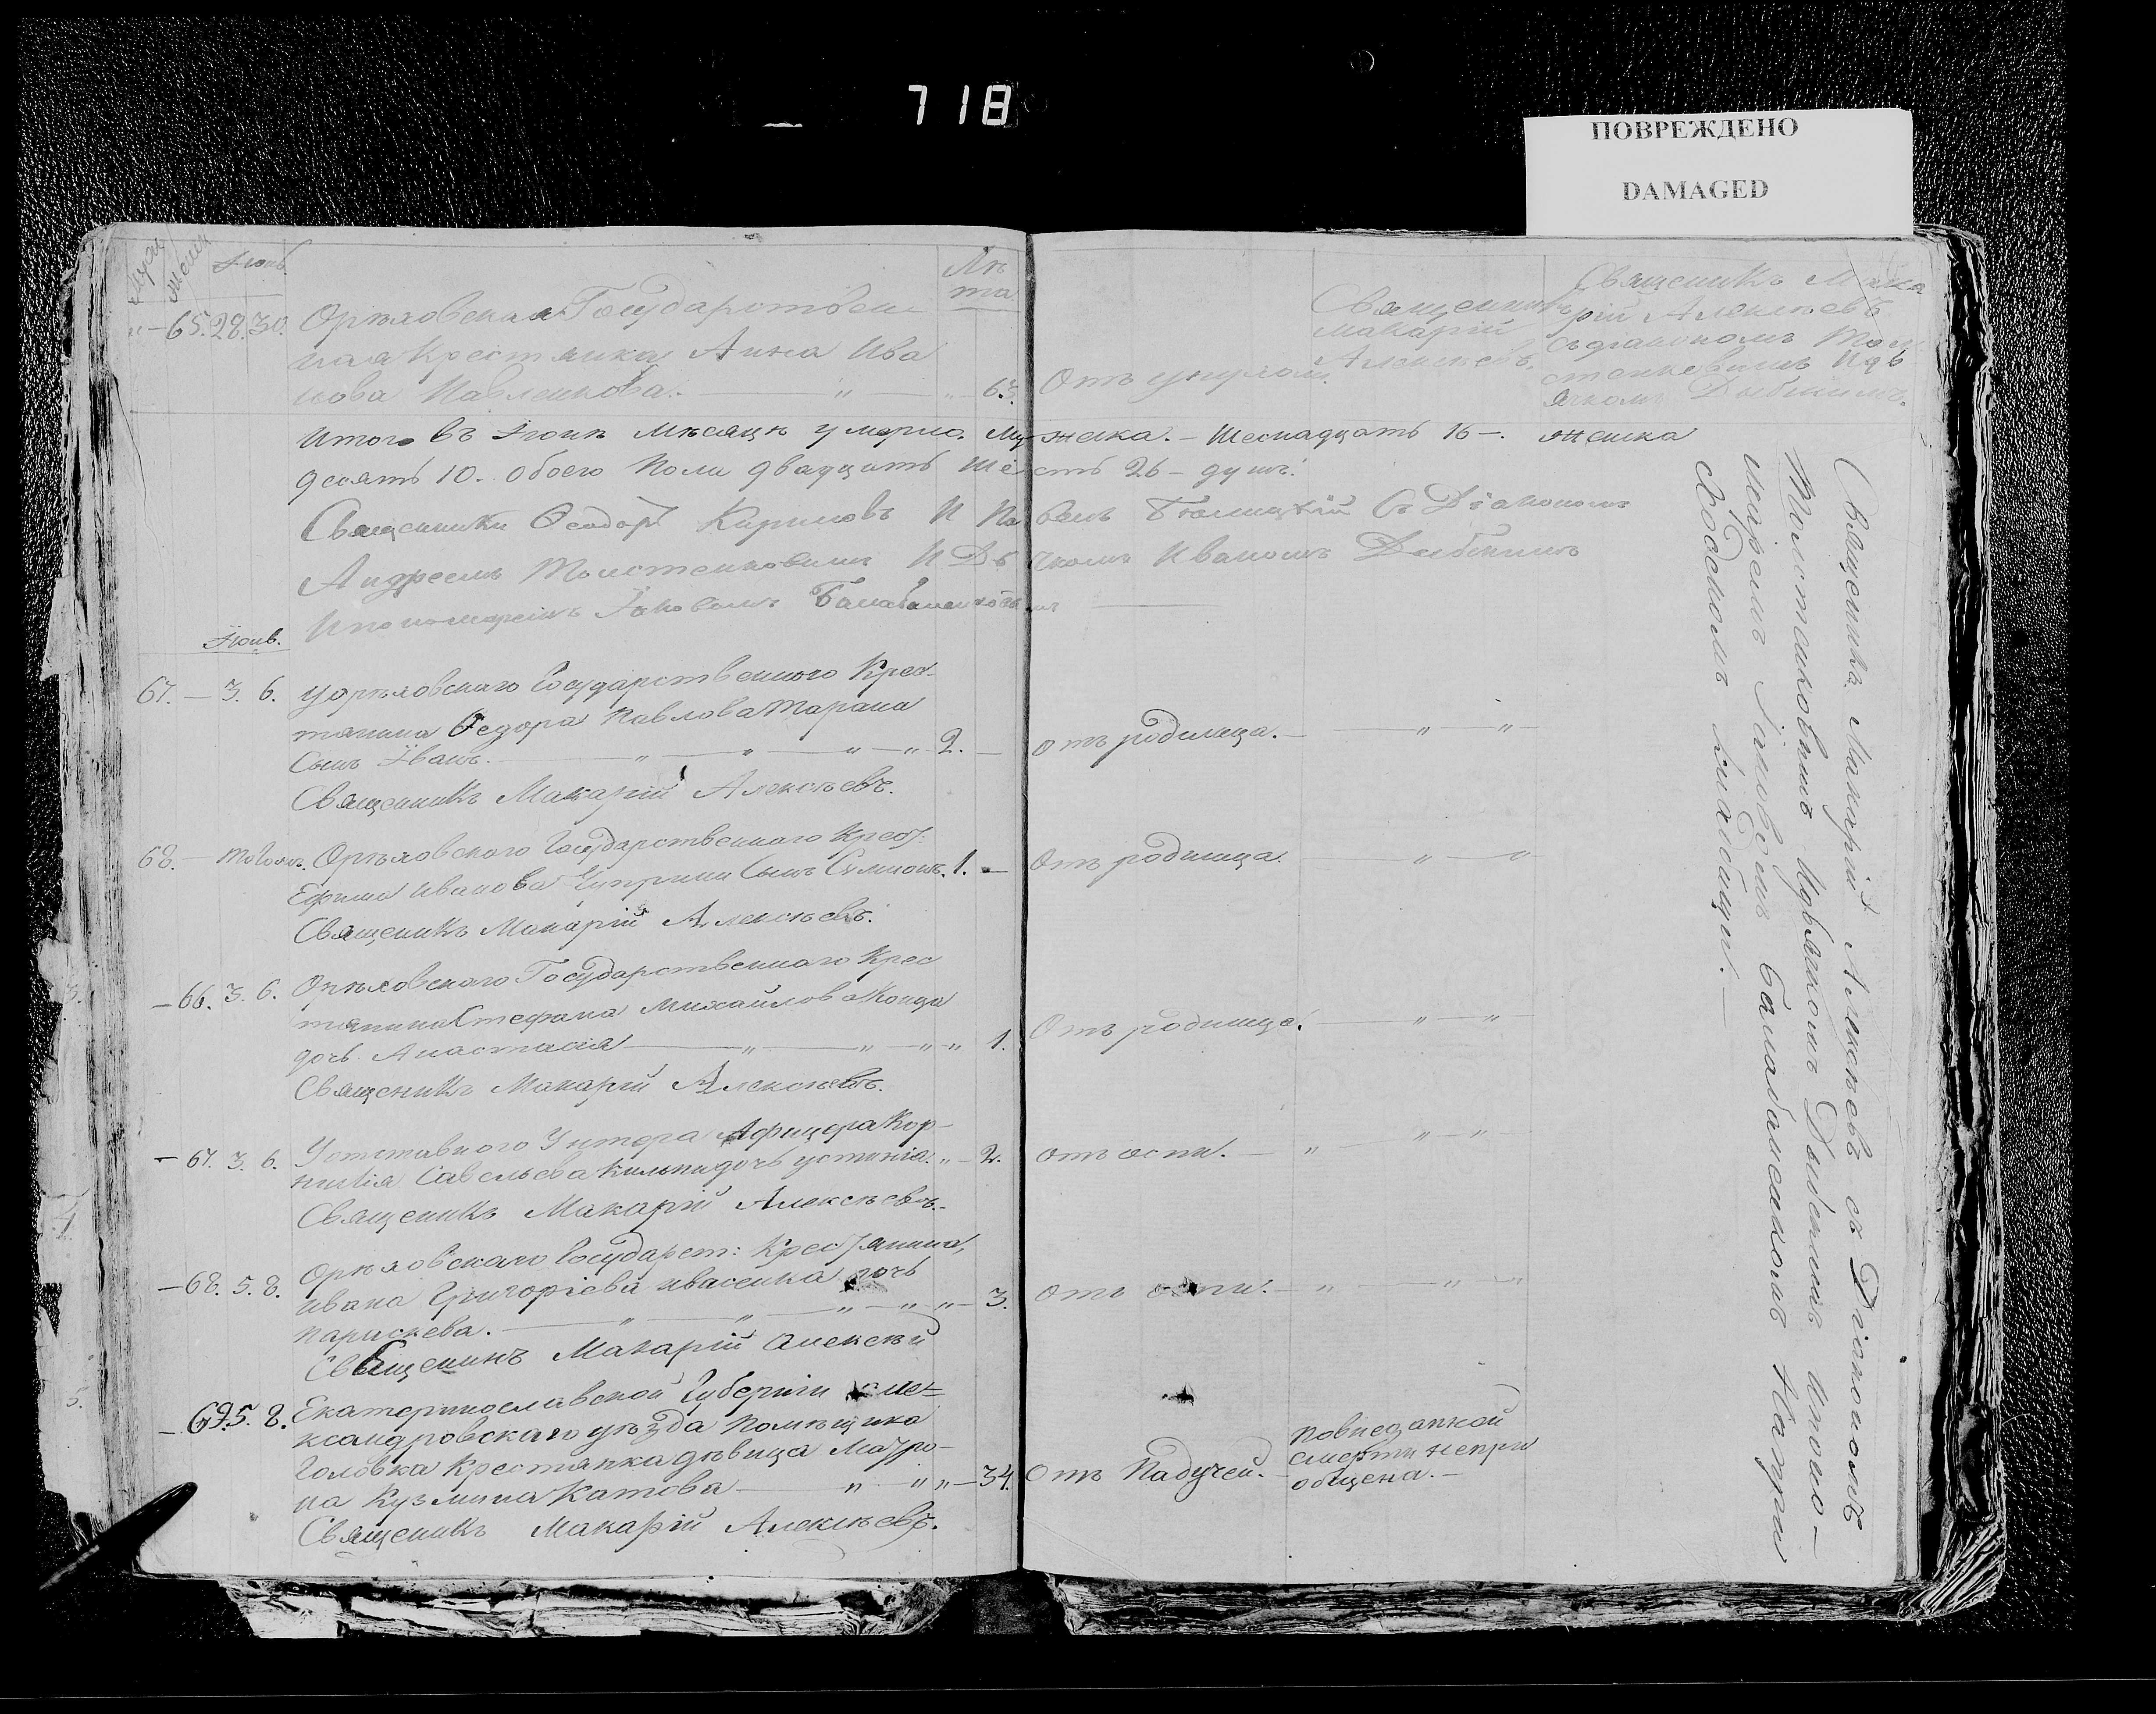 718
ПОВРЕЖДЕНО
DAMAGED
Іюнь
Лѣ
та
65. 28. 30. Орѣховская Государствен
ная Крестянка Анна Ива
нова Павленкова. 63.
Священникъ
Макарій
Алексѣевъ.
Священикъ Мака
рій Алексѣевъ
съ діакономъ Толс
стенковимъ Идь
ячкомъ
Итого въ Іюнѣ Мѣсяцѣ умерло. Мужеска. – Шеснадцать 16 –. женска
десять 10. обоего Пола двадцать шесть 26 – душъ.
Священники Ѳеодоръ Кириловъ И Павелъ Съ Діакономъ
Андреемъ Толстенковимъ И Дьячкомъ Иваномъ
Ипономаремъ Іаковомъ
Іюль.
67. – 3. 6. Уорѣховскаго Государственного Крес–
тянина Ѳедора Павлова Тарана
Сынъ Іванъ. 2. – отъ родимца.
Священикъ Макарій Алексѣевъ.
68. – Тогожъ. Орѣховского Государственнаго Крест:
Ефима Иванова Чуприни Сынъ Симионъ. 1. – Отъ родимца.
Священикъ Макарій Алексѣевъ.
– 66. 3. 6. Орѣховскаго Государственнаго Крес
тянина Стефана Михайлова
дочь Анастасія 1. Отъ родимца.
Священикъ Макарій Алексѣевъ.
– 67. 3. 6. Уотставного Унтера Афицера Кор–
нилія Савельева дочь устинія. 2. отъ оспи.
Священикъ Макарій Алексѣевъ.
– 68. 5. 8. Орѣховскаго Государст: Крестянина,
ивана Григоріева ивасенка дочь
парискева. 3. отъ оспи.
Священикъ Макарій Алексѣй
– 69. 5. 8. Екатеринославской Губерніи але–
ксандровскаго уѣзда Помѣщика
Головка Крестянка дѣвица Матро–
на Кузмина Катова 34. Отъ Падучей.
повнезапной
смерти непри
общена. –
Священикъ Макарій Алексѣевъ.
Священикъ Макарій Алексѣевъ съ Діакономъ
Толстенковимъ Идьячкомъ Ипоно–
маремъ Іаковомъ